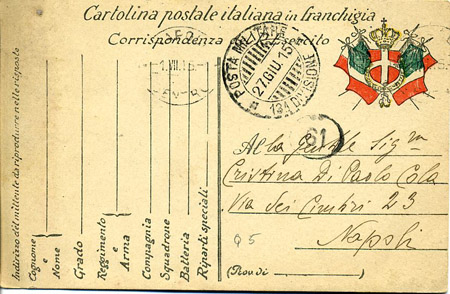 Cartolina postale italiana in franchigia
Corrispondenza del R. Esercito
POSTA MILITARE
27 GIU. 15
13A DIVISIONE
61
Indirizzo del mittente da riprodurre nelle risposte
Cognome e Nome
Grado
Reggimento e Arma
Compagnia
Squadrone
Batteria
Riparti speciali
Alla Gentile Sigra
Cristina Di Paolo Cola
Via Sei Cimbri 23
Napoli
95
(Prov. di